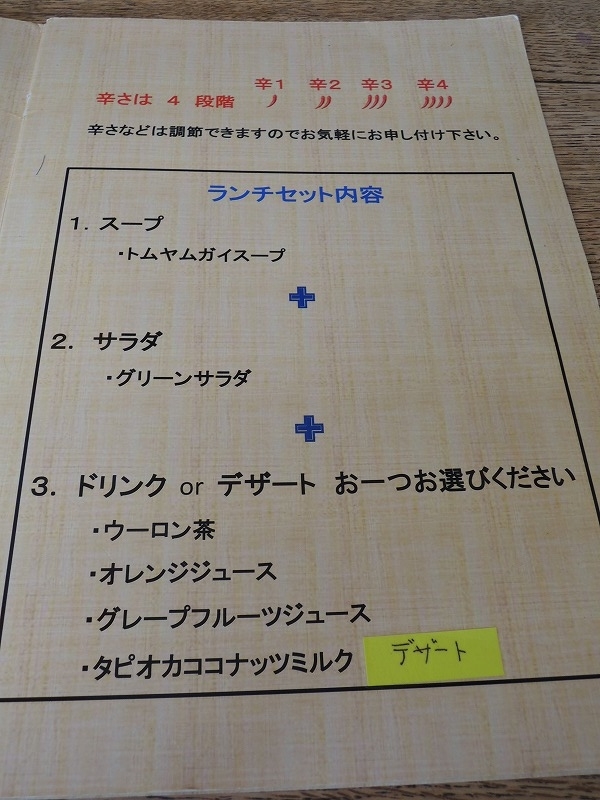 辛1 辛2 辛3 辛4
辛さは 4 段階
辛さなどは調節できますのでお気軽にお申し付け下さい。
ランチセット内容
1. スープ
・トムヤムガイスープ
2. サラダ
・グリーンサラダ
3. ドリンク or デザート お一つお選びください
・ウーロン茶
・オレンジジュース
・グレープフルーツジュース
・タピオカココナッツミルク デザート